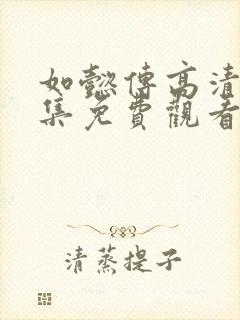 如懿傳高清
集免費觀看
清蒸提子